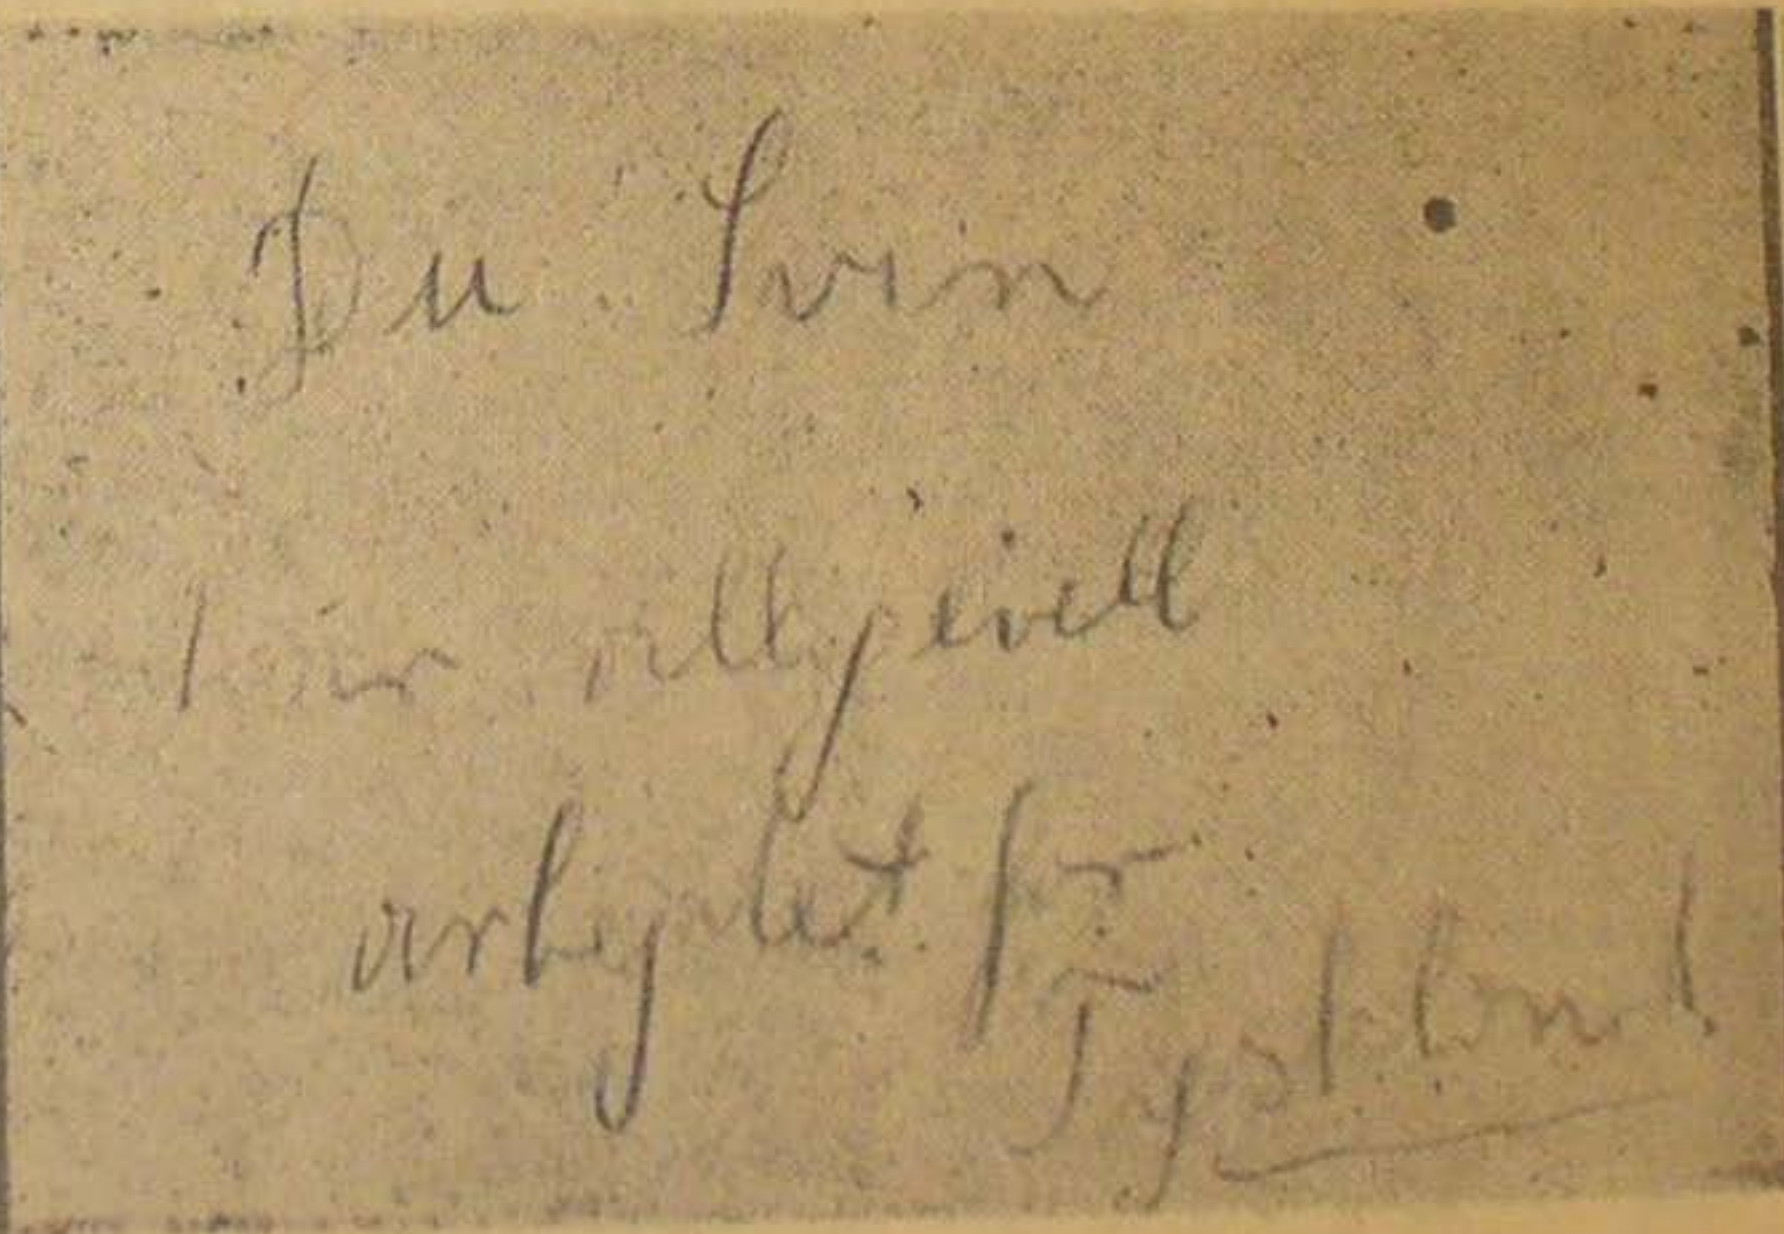 Du Svin
har alligevell
arbejdet for
Tyskland